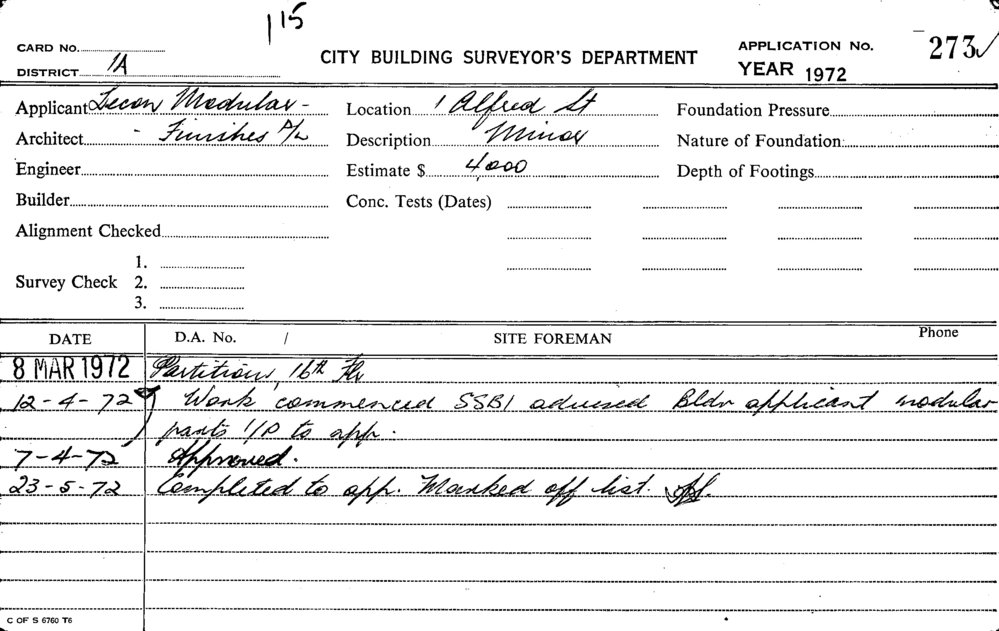 115
CARD No.
CITY BUILDING SURVEYOR'S DEPARTMENT
APPLICATION No. 273
DISTRICT 1A
YEAR 1972
Applicant Lecon Modular - Location 1 Alfred St Foundation Pressure
Architect - Finishes P/L Description Minor Nature of Foundation
Engineer Estimate $ 4,000 Depth of Footings
Builder Conc. Tests (Dates)
Alignment Checked
1.
Survey Check 2.
3.
DATE D.A. No. / SITE FOREMAN Phone
8 MAR 1972 Partition, 16th Flr
12-4-72 Work commenced SSB1 advised Bldr applicant modular
parts I/P to app.
7-4-72 Approved.
23-5-72 Completed to app. Marked off list.
C OF S 6760 T6